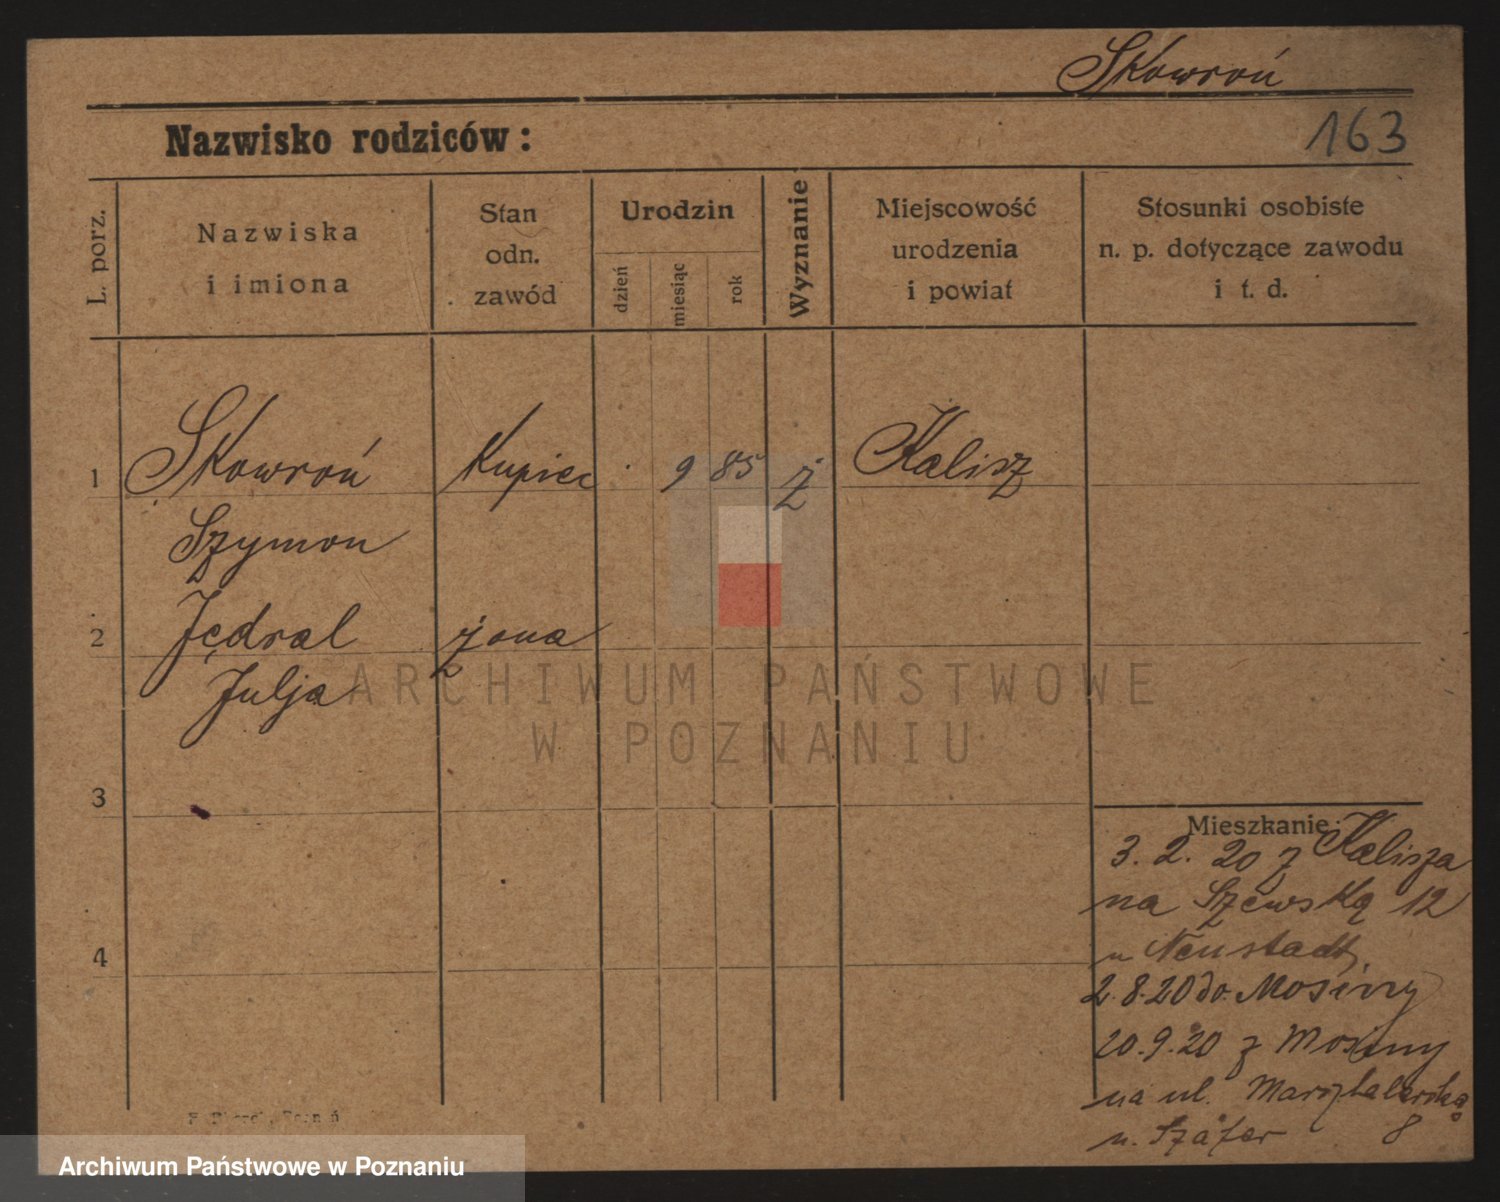 Skowroń
Nazwisko rodziców:
163
L. porz.
Nazwiska
i imiona
Stan
odn.
zawód
Urodzin
dzień
miesiąc
rok
Wyznanie
Miejscowość
urodzenia
i powiat
Stosunki osobiste
n. p. dotyczące zawodu
i t. d.
1 Skowroń Kupiec 9 85 ż Kalisz
Szymon
2 Jędral żona
Julja
ARCHIWUM PAŃSTWOWE
W POZNANIU
3
Mieszkanie:
3. 2. 20 z Kalisza
na Szewską 12
u Neustadt
4
2.8.20 do Mosiny
20.9.20 z Mosiny
na ul. Marsztalarską
u. Szafer 8
Archiwum Państwowe w Poznaniu